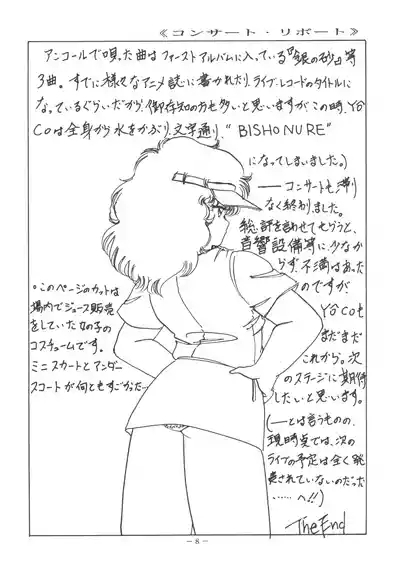 《コンサート・リポート》
アンコールで唄った曲はファーストアルバムに入っている『銀の砂』等
3曲。すでに様々なアニメ誌に書かれたり、ライブ・レコードのタイトルに
なっているぐらいだから、御存知の方も多いと思いますがこの時、YO
COは全身から水をかぶり、文字通り、“BISHONURE”
になってしまいました。)
──コンサートも滞り
なく終わりました。
総評を言わせてもらうと、
音響設備等に少なか
らず不満はあった
のですが
YOCOも
まだまだ
これから。次
のステージに期待
したいと思います。
(──とは言うものの、
現時点では、次の
ライブの予定は全く発
表されていないのだった
……へ!!)
The End
○このページのカットは
場内でジュース販売
をしていた女の子の
コスチュームです。
ミニスカートとアンダー
スコートが何ともすごかった…
－8－